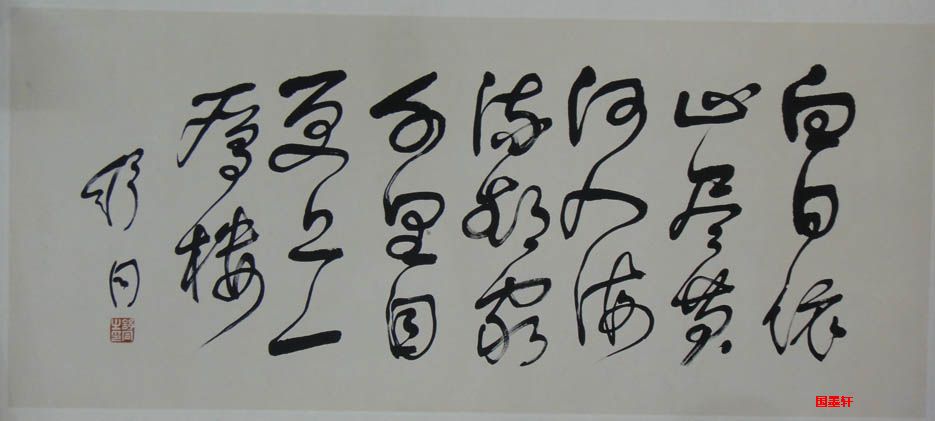 白日依
山尽黄
河入海
流欲穷
千里目
更上一
层楼
舒同
舒同之印
国墨轩